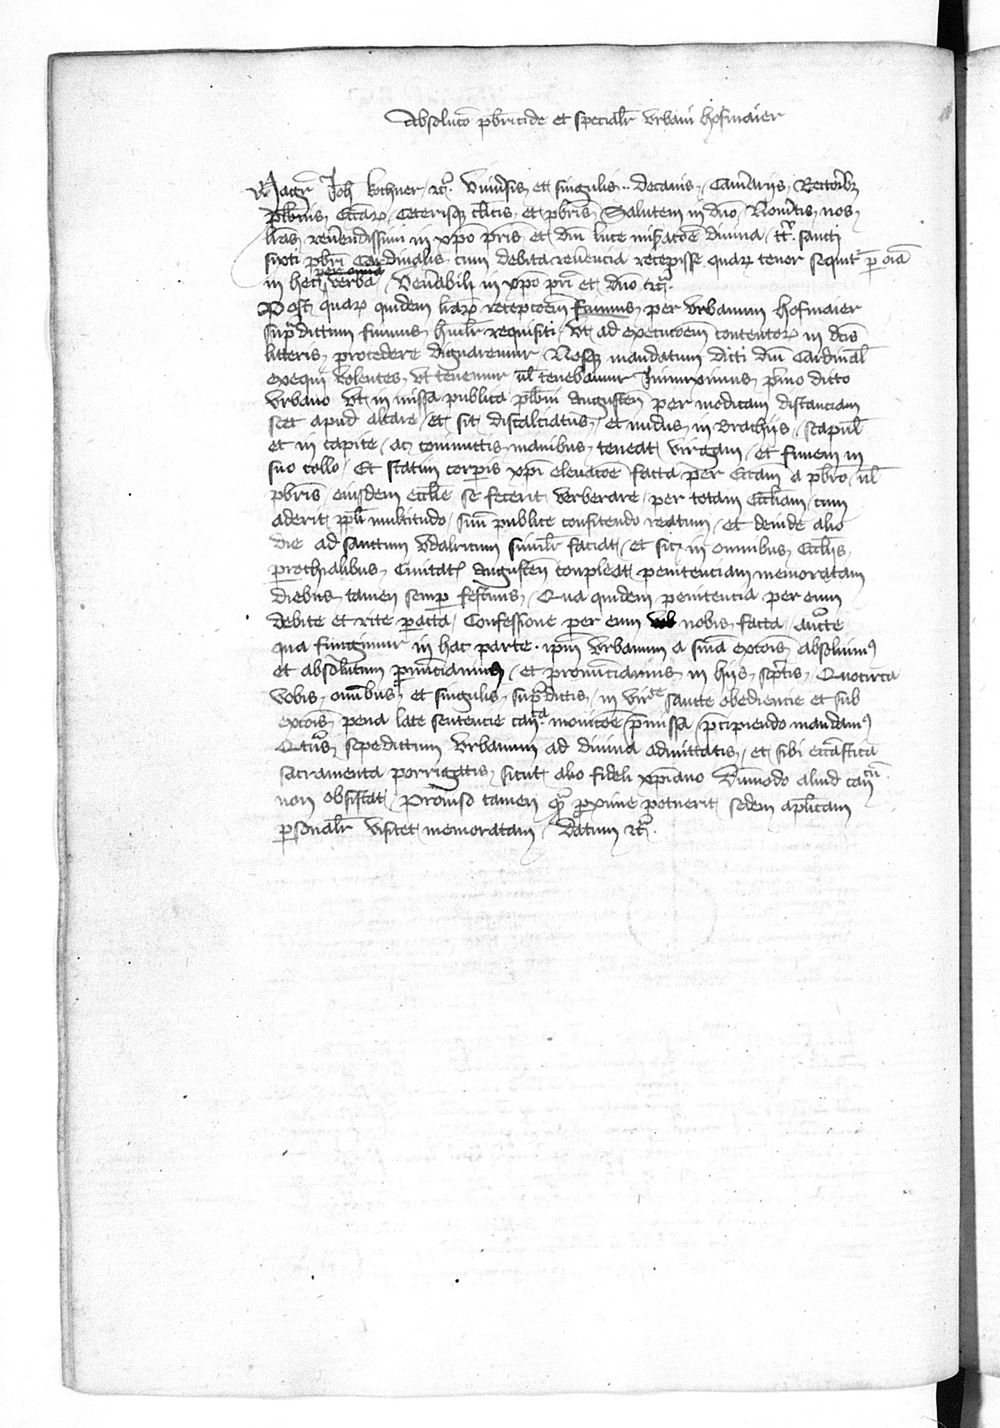 Absolucō pbricide et specialr̄ vrbani hofmaier
Magr̄ Joh kochner, rc̄. Vniu̾sis et singulis .. decanis, Cam̄eriis, Rectorib
plb̄nis, Ecc̄ar, Ceterisq cl̄icis, et pbr̄is, Salutem in dn̄o, Nou̾itis nos
lrās reuendissimi in xpō pr̄is et dn̄i luce mis̄atoē diuina, tt̄. sancti
sixti pbrī Cardinalis cum debita reu̾encia recepisse quar tenor sequit̾ p̄ oīa
per omnia
in hec verba, Ven̾abili in xpō prī et dn̄o rc̄.
Post quar quidem lrār recepcōem fuimus per vrbanum hofmaier
supradictum fuimus hūilr̄ requisiti, vt ad execucōem contentor in dcīs
litteris procedere dignaremur, Nosq mandatum dicti dn̄i Cardinal̄
exequi volentes, vt tenemur ul̄ tenebamur Iniunximus p̄mo dicto
vrbano vt in missa publica plb̄ni augusten̄ per medicam distanciam
stet apud altare, et sit discalciatus, et nudus in brachiis, scapul̄
et in capite, ac coniunctis manibus, teneat virgam, et funem in
suo collo, Et statim corpīs xpī eleuacōe facta per Ecc̄am a pbrō, ul̄
pbr̄is eiusdem eccl̄ie se fecerit verberare, per totam Eccl̄iam, cum
aderit ppl̄i multitudo, suū publice confitendo reatum, et deinde alio
die ad sanctum vdalricum similr̄ faciat, et sic in omnibus Eccl̄iis
p̄rochialibus Ciuitat̄ augusten̄ conpleat penitenciam memoratam
diebus tamen semp̄ festiuis, Qua quidem penitencia per eum
debite et rite p̄acta, Confessione per eum nobis facta, auc̄te
qua fungimur in hac parte ip̄m vrbanum a sūia excoīs absoluim9
et absolutum pronunciamus, et pronunciamus in hiis sc̄ptis, Quocirca
vobis omībus, et singulis, sup̄dictis, in virte sancte obediencie et sub
excoīs pena late sentencie canca monicōe p̄missa p̄cipiendo mandam9
Qtus sepedictum vrbanum ad diuina admittatis, et sibi eccāstica
sacramenta porrigatis, sicut alio fideli xpīano dūmodo aliud canu
non obsistat, Prouiso tamen q p̄xime potuerit sedem aplicam
p̄sonalr̄ visitet memoratam, Datum rc̄.